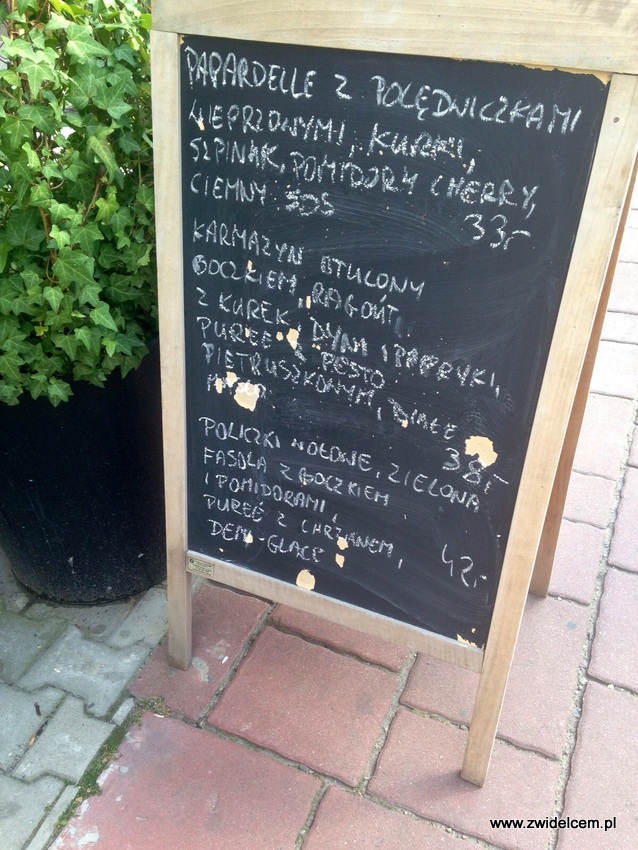 PAPARDELLE Z POLĘDWICZKAMI
WIEPRZOWYMI, KURKI,
SZPINAK, POMIDORY CHERRY,
CIEMNY SOS 33,-
KARMAZYN OTULONY
BOCZKIEM, RAGOÛT
Z KUREK, DYNI I PAPRYKI,
PUREÉ Z PESTO
PIETRUSZKOWYM, BIAŁE
38,-
POLICZKI WOŁOWE, ZIELONA
FASOLA Z BOCZKIEM
I POMIDORAMI,
PUREÉ Z CHRZANEM,
DEMI-GLACE 42,-
www.zwidelcem.pl